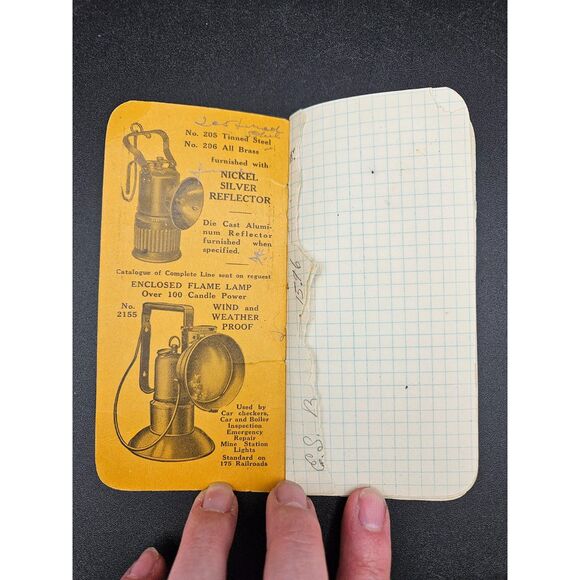 No. 205 Tinned Steel
No. 206 All Brass
furnished with
NICKEL
SILVER
REFLECTOR
Die Cast Alumi-
num Reflector
furnished when
specified.
Catalogue of Complete Line sent on request
ENCLOSED FLAME LAMP
Over 100 Candle Power
No.
2155
WIND and
WEATHER
PROOF
Used by
Car checkers,
Car and Boiler
Inspection
Emergency
Repair
Mine Station
Lights
Standard on
175 Railroads
15.76